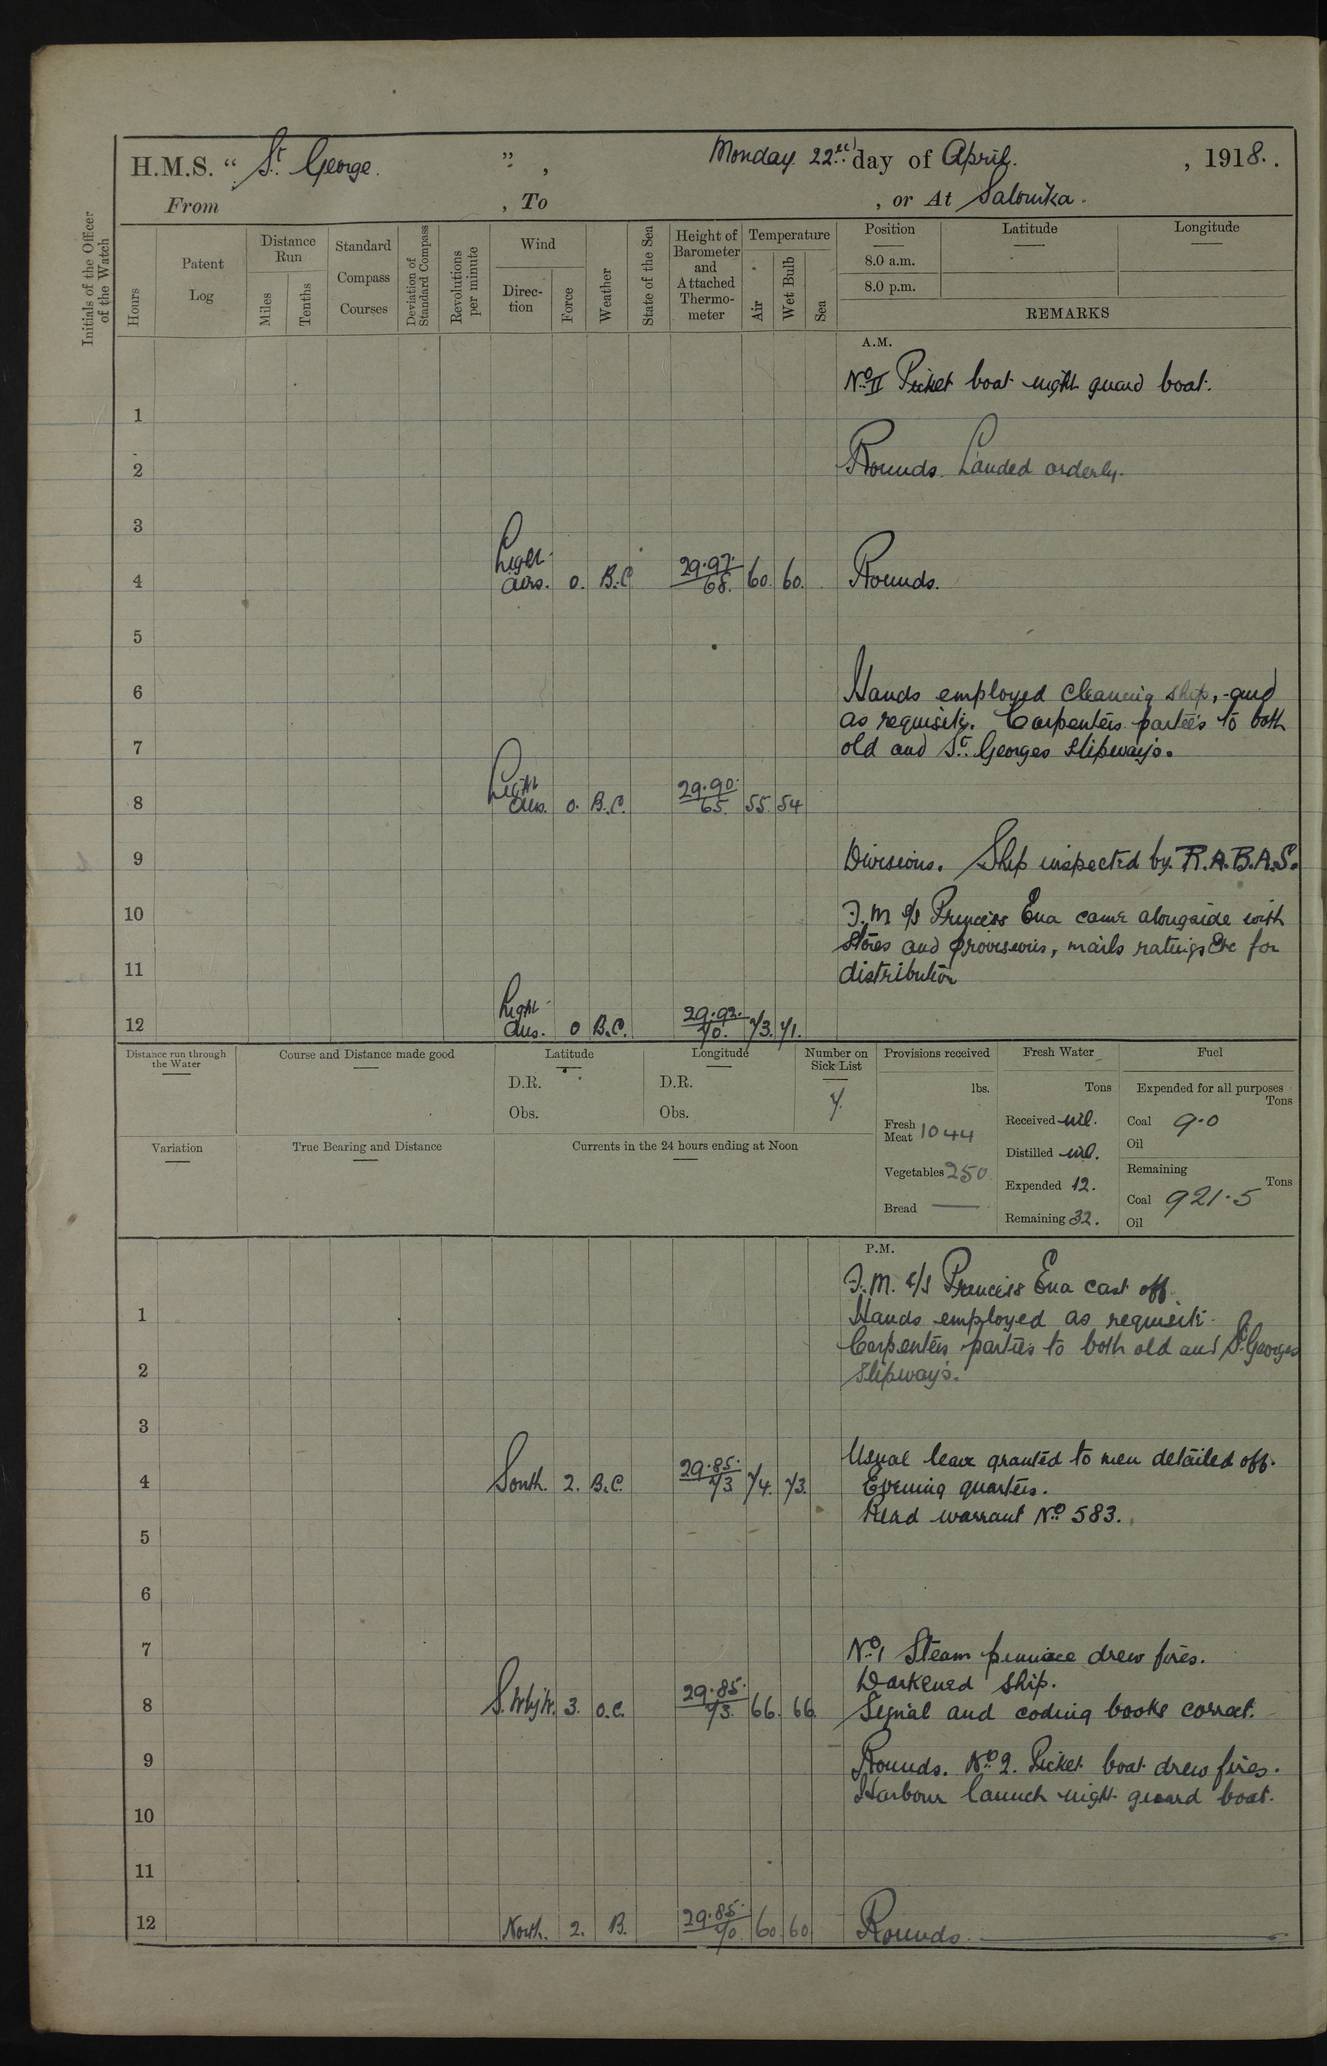 H.M.S. “ St George. ” , Monday 22nd day of April. , 1918. .
From , To , or At Salonika.
Initials of the Officer of the Watch
Hours
Patent Log
Distance Run
Miles
Tenths
Standard Compass Courses
Deviation of Standard Compass
Revolutions per minute
Wind
Direction
Force
Weather
State of the Sea
Height of Barometer and Attached Thermometer
Temperature
Air
Wet Bulb
Sea
Position
8.0 a.m.
8.0 p.m.
Latitude
Longitude
REMARKS
A.M.
No II Picket boat night guard boat.
1
2 Rounds. Landed orderly.
3
4 Light airs. 0. B.C 29.97. 68. 60. 60. Rounds.
5
6 Hands employed cleaning ship, and
as requisite. Carpenters parties to both
7 old and St. Georges slipways.
8 Light airs. 0. B.C. 29.90. 65. 55. 54
9 Divisions. Ship inspected by R.A.B.A.S.
10 F.M s/s Princess Ena came alongside with
stores and provisions, mails ratings Etc for
11 distribution
12 Light airs. 0 B.C. 29.92. 70. 73. 71.
Distance run through the Water
Course and Distance made good
Latitude
D.R.
Obs.
Longitude
D.R.
Obs.
Number on Sick List
7.
Variation
True Bearing and Distance
Currents in the 24 hours ending at Noon
Provisions received
lbs.
Fresh Meat 1044
Vegetables 250
Bread —
Fresh Water
Tons
Received nil.
Distilled nil.
Expended 12.
Remaining 32.
Fuel
Expended for all purposes
Tons
Coal 9.0
Oil
Remaining
Tons
Coal 921.5
Oil
P.M.
F.M. s/s Princess Ena cast off.
1 Hands employed as requisite.
Carpenters parties to both old and St. Georges
2 slipways.
3
Usual leave granted to men detailed off.
4 South. 2. B.C. 29.85. 73 74. 73. Evening quarters.
Read warrant No 583.
5
6
7 No 1 Steam pinnace drew fires.
Darkened ship.
8 S.WbyW. 3. o.c. 29.85. 73. 66. 66. Signal and coding books correct.
9 Rounds. No 2. Picket boat drew fires.
Harbour launch night guard boat.
10
11
12 North. 2. B. 29.85. 70. 60 60 Rounds.